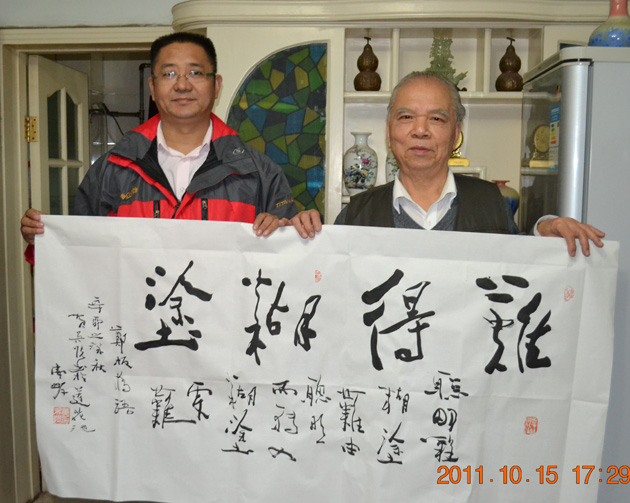 難得糊塗
聰明難
糊塗
難由
聰明
而轉入
糊塗
難
鄭板橋語
辛卯之深秋
2011.10.15 17:29